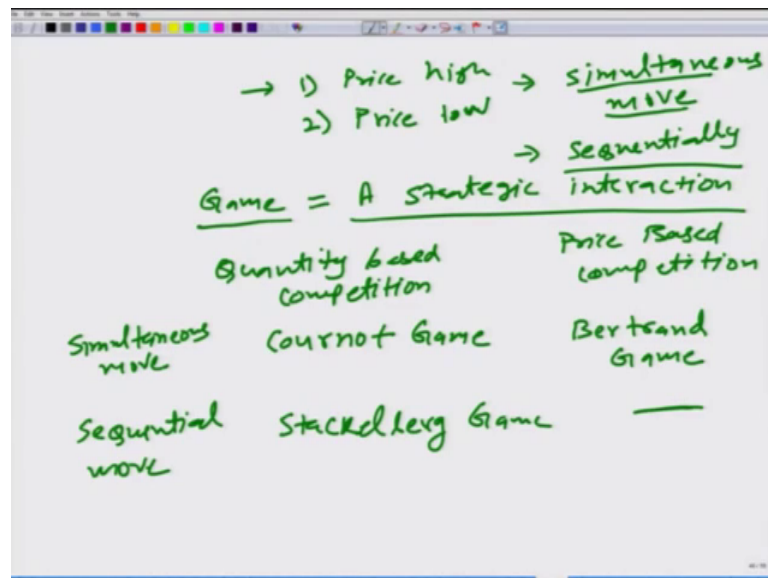 → 1) Price high → simultaneous
move
2) Price low
→ sequentially
Game = A strategic interaction
Quantity based
competition
Price Based
competition
Simultaneous
move
Cournot Game
Bertrand
Game
Sequential
move
Stackelberg Game
—